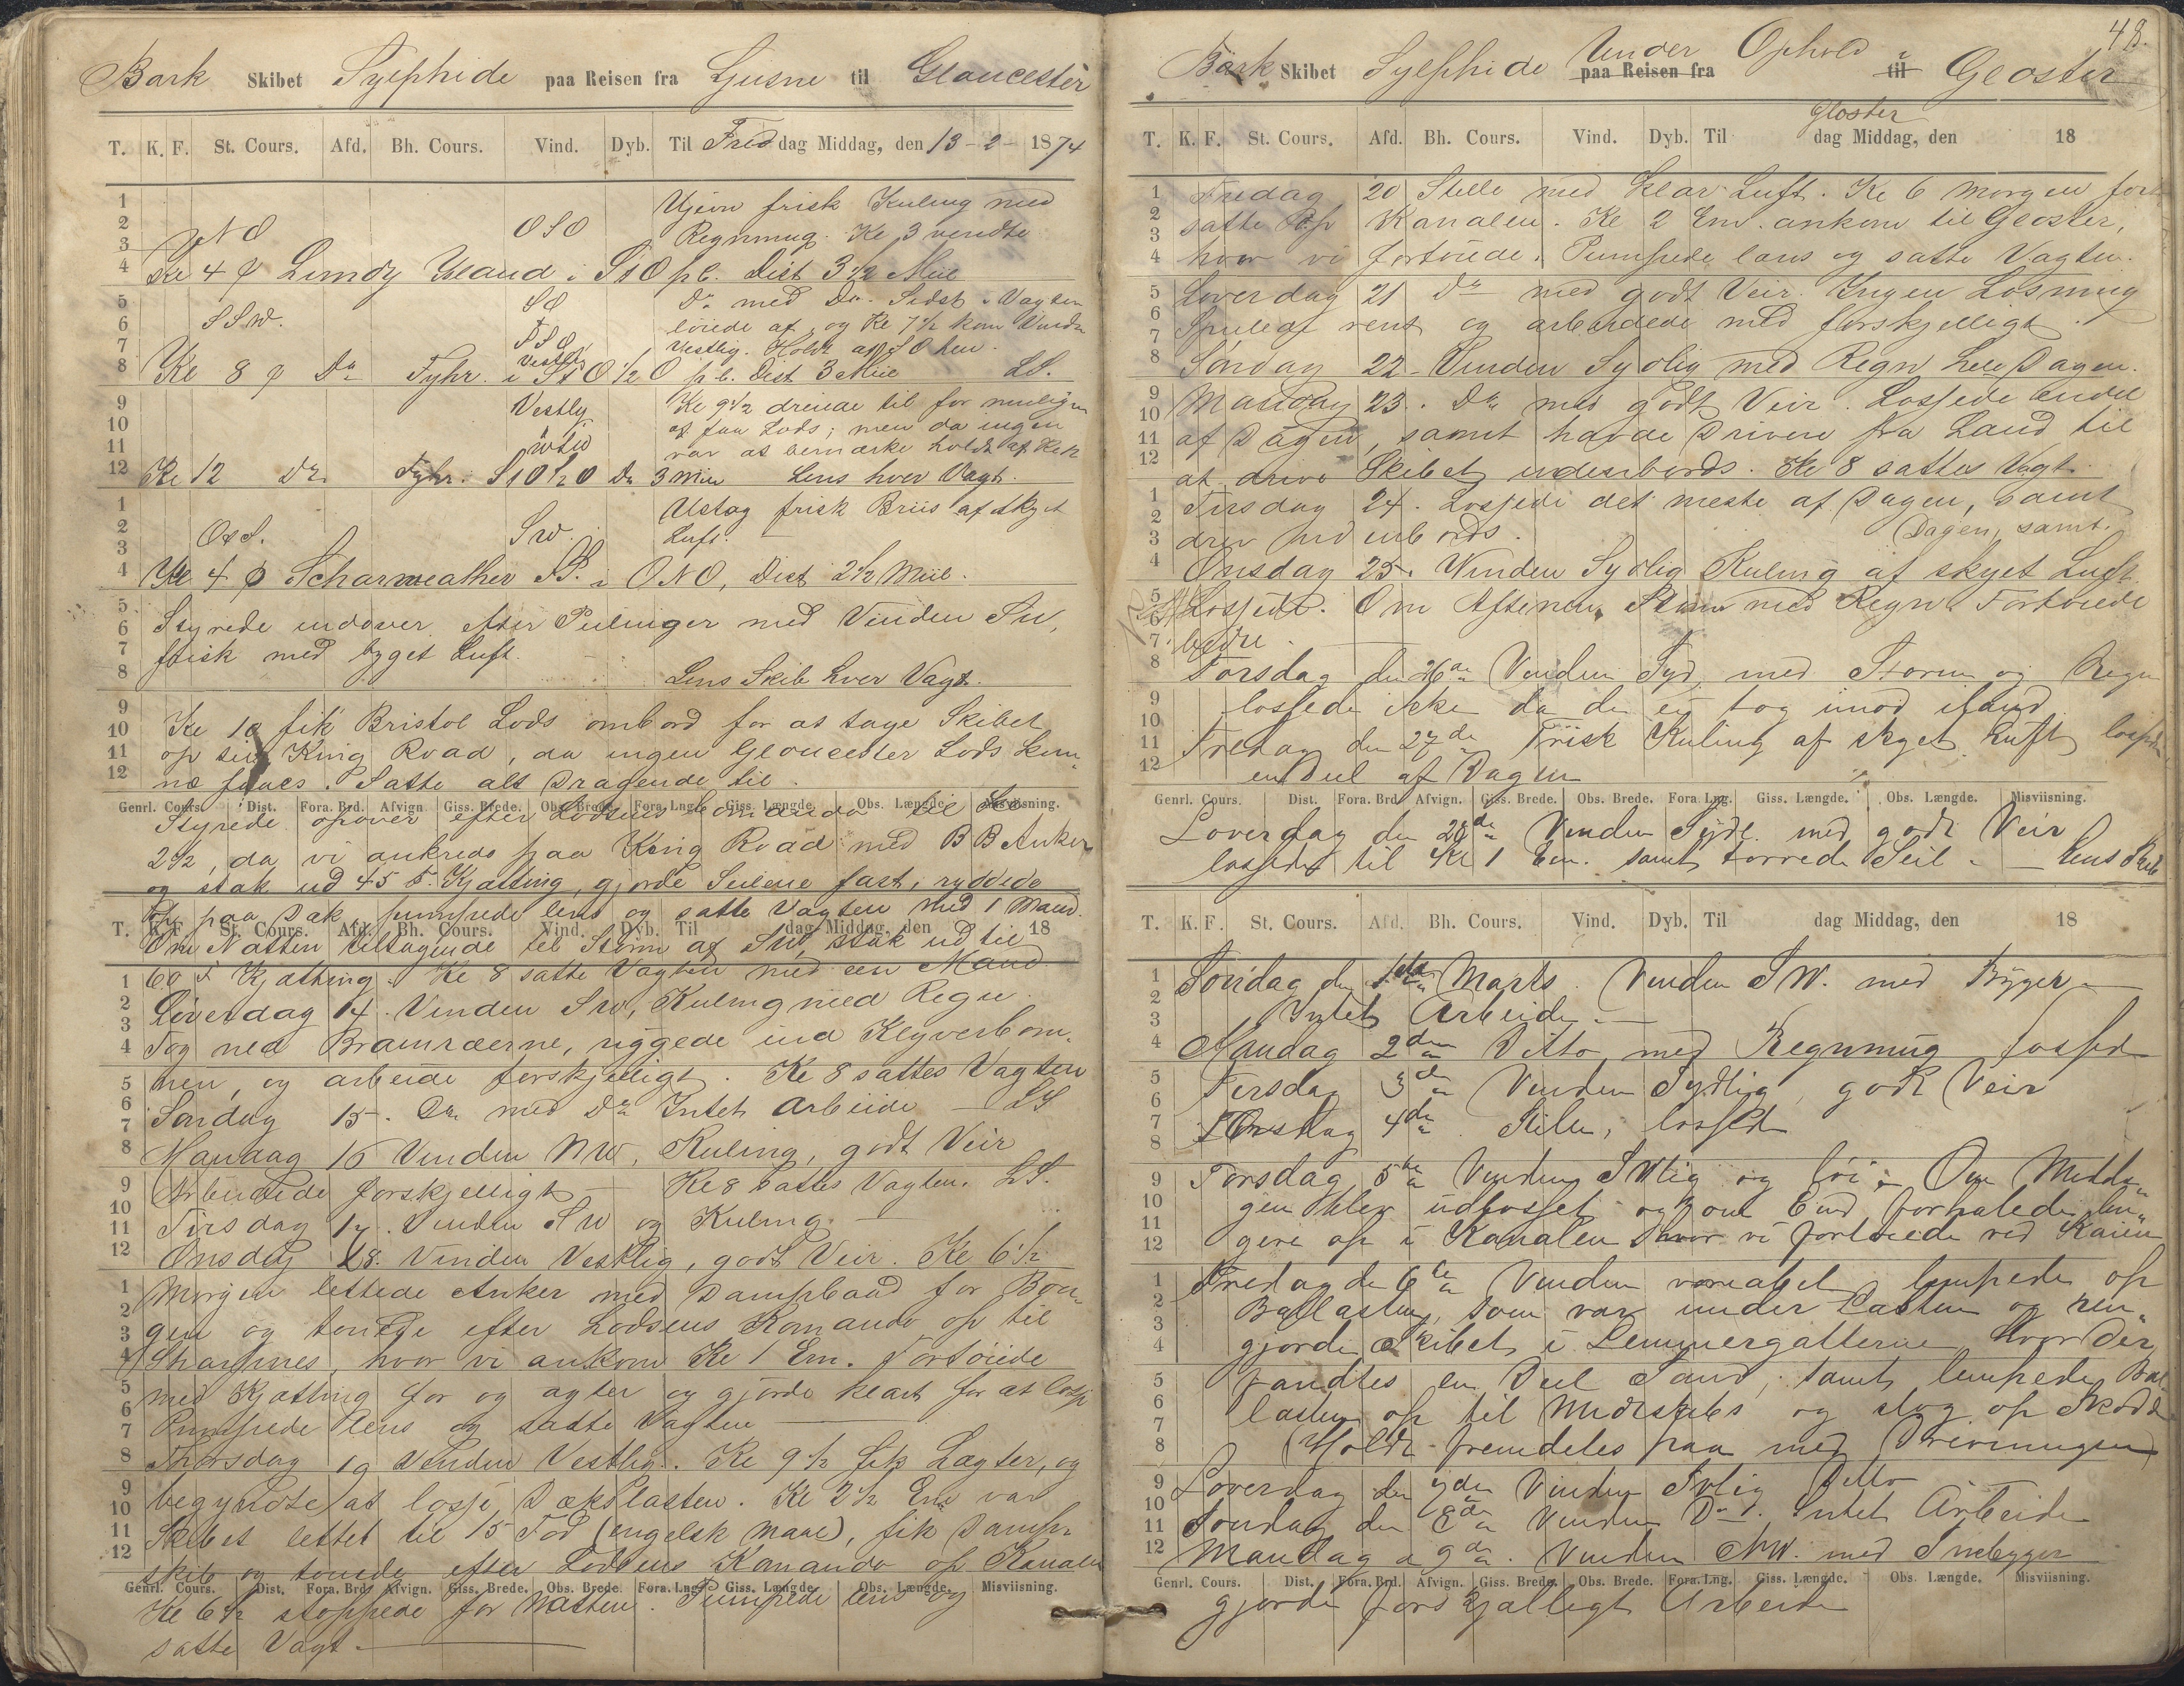 Bark Skibet Sylphide paa Reisen fra Ljusne til Gloucester
T. K. F. St. Cours. Afd. Bh. Cours. Vind. Dyb. Til Freddag Middag, den 13-2- 1874
1 Ujevn frisk Kuling med
2 NO OSO Regnmug. Kl 3 vendte
3
4 Kl 4 Lundy Island i StO pl. Dist 3 1/2 Miil
5 SO Do med Do. Sidst i Vagten
6 SSW. løiede af og Kl 7 1/2 kom Vinden
7 SSO Vestlig. Holdt af SO hen.
8 Kl 8 Do Fyhr. i StO 1/2 O pl. Dist 3 Miil LS.
Vestlig
9 Vestlig Kl 9 1/2 dreiede til for muligen
10 at faa Lods; men da ingen
11 var at bemærke holdt af. Kl 12
12 Kl 12 Do Fyhr. StO 1/2 O Do 3 Miil Lens hver Vagt.
1 Ustag frisk Briis af skyet
2 OtS. SW. Luft.
3
4 Kl 4 Scharweather i ONO, Dist 2 1/2 Miil.
5 Styrede indover efter Peilinger med Vinden SW,
6
7 frisk med byget Luft.
8 Lens Skib hver Vagt.
9
10 Kl 10 fik Bristol Lods ombord for at tage Skibet
11 op til King Road, da ingen Gloucester Lods kun-
12 ne faaes. Satte alt Dragende til.
Genrl. Cours. Dist. Fora. Brd. Afvign Giss. Brede. Obs. Brede. Fora. Lng. Giss. Længde. Obs. Længde. Misviisning.
Styrede opover efter Lodsens Comando til
2 1/2, da vi ankrede paa King Road med BB Anker
og stak ud 45 F. Kjætting, gjorde Seilene fast, ryddede
op paa Dæk, pumpede lens og satte Vagten med 1 Mand.
T. K. F. St. Cours. Afd. Bh. Cours. Vind. Dyb. Til dag Middag, den 18
Om Natten tiltagende til Storm af SW, stak ud til
1 60 F Kjætting. Kl 8 satte Vagten med een Mand
2 Løverdag 14. Vinden SW, Kuling med Regn.
3
4 Tog ned Bramræerne, riggede ind Klyverbom-
5 men, og arbeide forskjelligt. Kl 8 sattes Vagten
6
7 Søndag 15. Do med Do Intet Arbeide LS
8 Mandag 16 Vinden NW, Kuling, godt Veir
9 Arbeidede forskjelligt Kl 8 sattes Vagten. LS.
10
11 Tirsdag 17. Vinden SW og Kuling.
12 Onsdag 18. Vinden Vestlig, godt Veir. Kl 6 1/2
1 Morgen lettede Anker med Dampbaad for Bou-
2
3 gen og touede efter Lodsens Komando op til
4 Sharpnes, hvor vi ankom Kl 1 Em. Fortøiede
5 med Kjætting for og agter og gjorde klart for at losse
6
7 Pumpede lens og satte Vagten
8 Thorsdag 19 Vinden Vestlig. Kl 9 1/2 fik Lægter, og
9 begyndte at losse Dækslasten. Kl 2 1/2 Em var
10
11 Skibet lettet til 15 Fod (engelsk maal), fik Damp-
12 skib og touede efter Lodsens Komando op Kanalen
Genrl. Cours. Dist. Fora. Brd. Afvign. Giss. Brede. Obs. Brede. Fora. Lng. Giss. Længde. Obs. Længde. Misviisning.
Kl 6 1/2 stoppede for Natten. Pumpede lens og
satte Vagt.
48.
Bark Skibet Sylphide Under Ophold i Gloster
paa Reisen fra til
Gloster
T. K. F. St. Cours. Afd. Bh. Cours. Vind. Dyb. Til dag Middag, den 18
1 Fredag 20 Stille med klar Luft. Kl 6 Morgen fort
2
3 satte op Kanalen. Kl 2 Em. ankom til Gloster,
4 hvor vi fortøiede. Pumpede lens og satte Vagten.
5 Løverdag 21 Do med godt Veir. Ingen Losning
6
7 Spulede rent og arbeidede med forskjelligt.
8 Søndag 22 Vinden Sydlig med Regn hele Dagen.
9 Mandag 23. Do med godt Veir. Lossede endel
10
11 af Dagen, samt havde Drivere fra Land til
12 at drive Skibet indenbords. Kl 8 sattes Vagt.
1 Tirsdag 24. Lossede det meste af Dagen, samt
2
3 drev indenbords. Dagen, samt.
4 Onsdag 25. Vinden Sydlig Kuling af skyet Luft
5
6 Lossede. Om Aftenen Storm med Regn. Fortøiede
7 bedre.
8 Torsdag den 26de Vinden Syd, med Storm og Regn
9
10 lossede ikke da de ei tog imod iland.
11 Fredag den 27de Frisk Kuling af skyet Luft lossede
12 en Deel af Dagen
Genrl. Cours. Dist. Fora. Brd. Afvign. Giss. Brede. Obs. Brede. Fora. Lng. Giss. Længde. Obs. Længde. Misviisning.
Løverdag den 28de Vinden Sydl. med godt Veir
lossede til Kl 1 Em. samt tørrede Seil. Lens Skib
T. K. F. St. Cours. Afd. Bh. Cours. Vind. Dyb. Til dag Middag, den 18
1 Søndag den 1ste Marts. Vinden SW. med Bygger
2
3 Intet Arbeide.
4 Mandag 2den Ditto med Regnmug lossede
5
6 Tirsdag 3de Vinden Sydlig, godt Veir
7 Onsdag 4de. Stille, lossede
8
9 Torsdag 5te Vinden SVlig og løi. Om Midda-
10 gen blev udlosset og om Emd forhalede len-
11
12 gere op i Kanalen hvor vi fortøiede ved Kaien
1 Fredag de 6te Vinden variabel lempede op
2 Ballasten, som var under Lasten og ren-
3
4 gjorde Skibet i Lemmergatterne, hvor der
5 fandtes en Deel Sand, samt lempede Bal-
6 lasten op til Midtskibs og slog op Skodd
7
8 Holdt fremdeles paa med Drevningen
9 Løverdag den 7de Vinden Svlig Ditto
10
11 Søndag den 8de Vinden Do. Intet Arbeide
12 Mandag d 9de. Vinden NW. med Snebygger
Genrl. Cours. Dist. Fora. Brd. Afvign. Giss. Brede. Obs. Brede. Fora. Lng. Giss. Længde. Obs. Længde. Misviisning.
gjorde forskjælligt Arbeide